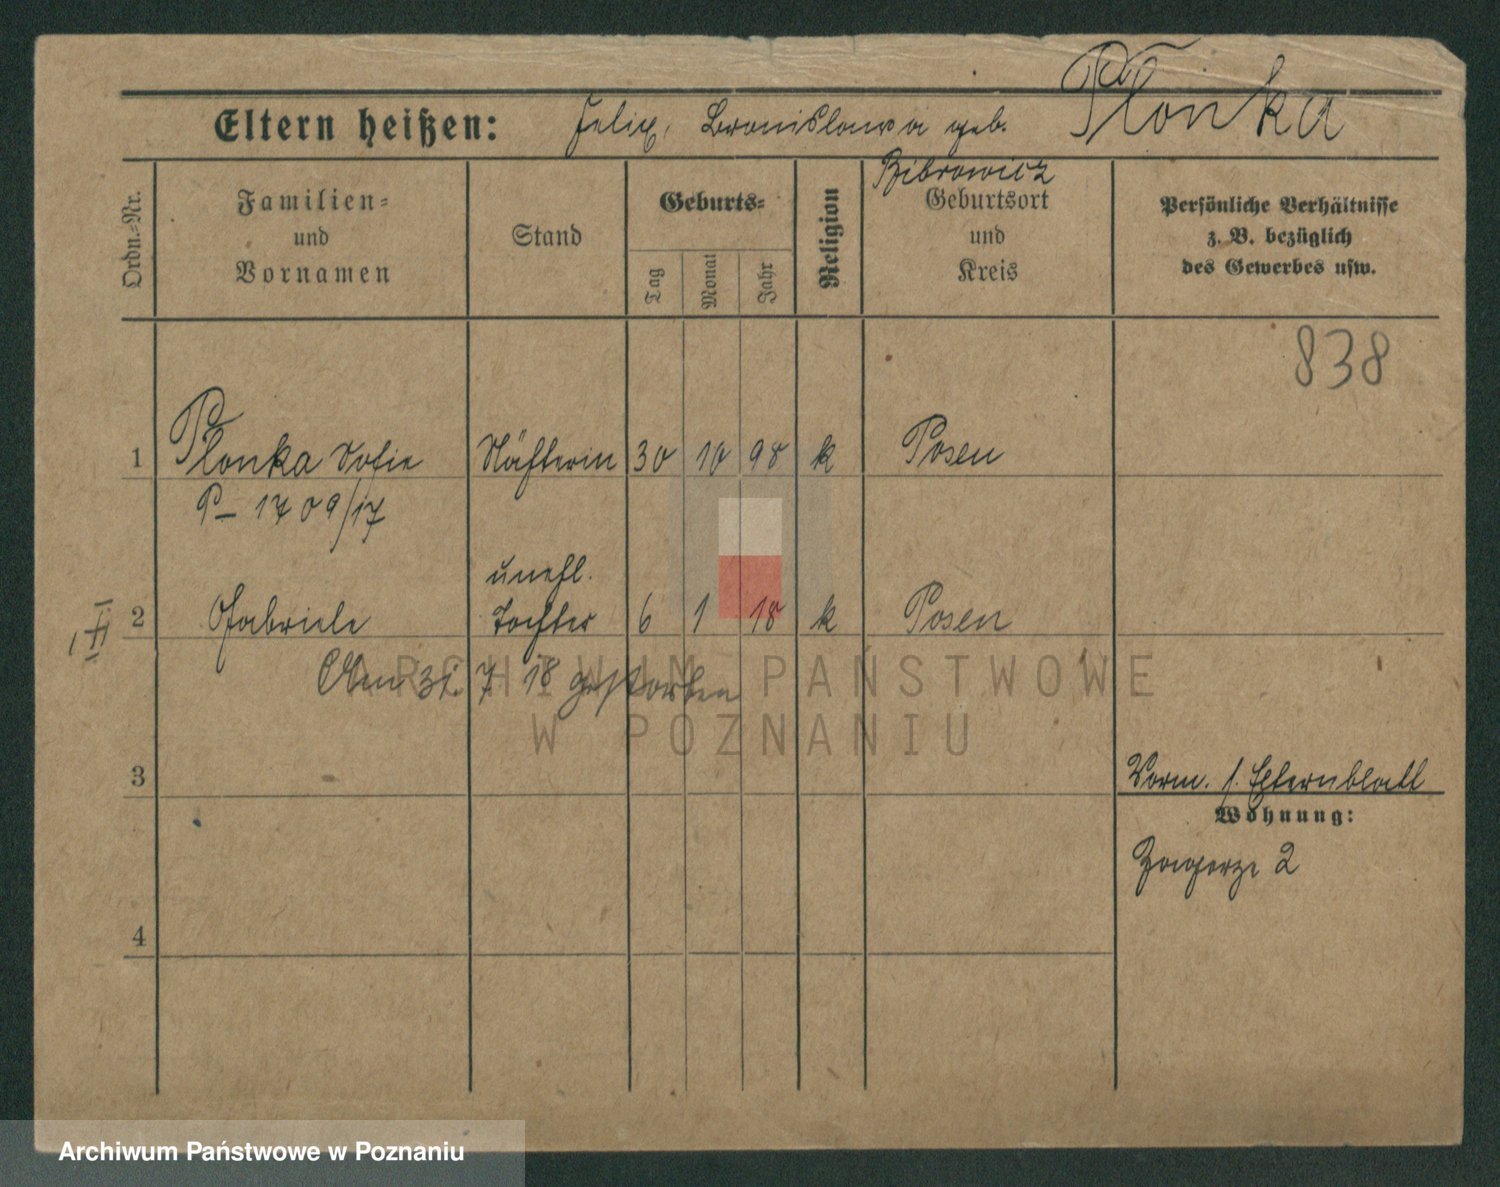 Plonka
Eltern heißen: Felix, Bronislawa geb.
Bibrowicz
Ordn.-Nr.
Familien-
und
Vornamen
Stand
Geburts-
Tag
Monat
Jahr
Religion
Geburtsort
und
Kreis
Persönliche Verhältnisse
z. B. bezüglich
des Gewerbes usw.
838
1 Plonka Sofie Näherin 30 10 98 k Posen
P- 1709/17
unehl.
2 Gabriele Tochter 6 1 18 k Posen
31. 7 18 gestorben
ARCHIWUM PAŃSTWOWE
W POZNANIU
3
Vorm. s. Elternblatt
Wohnung:
Zagorze 2
4
Archiwum Państwowe w Poznaniu